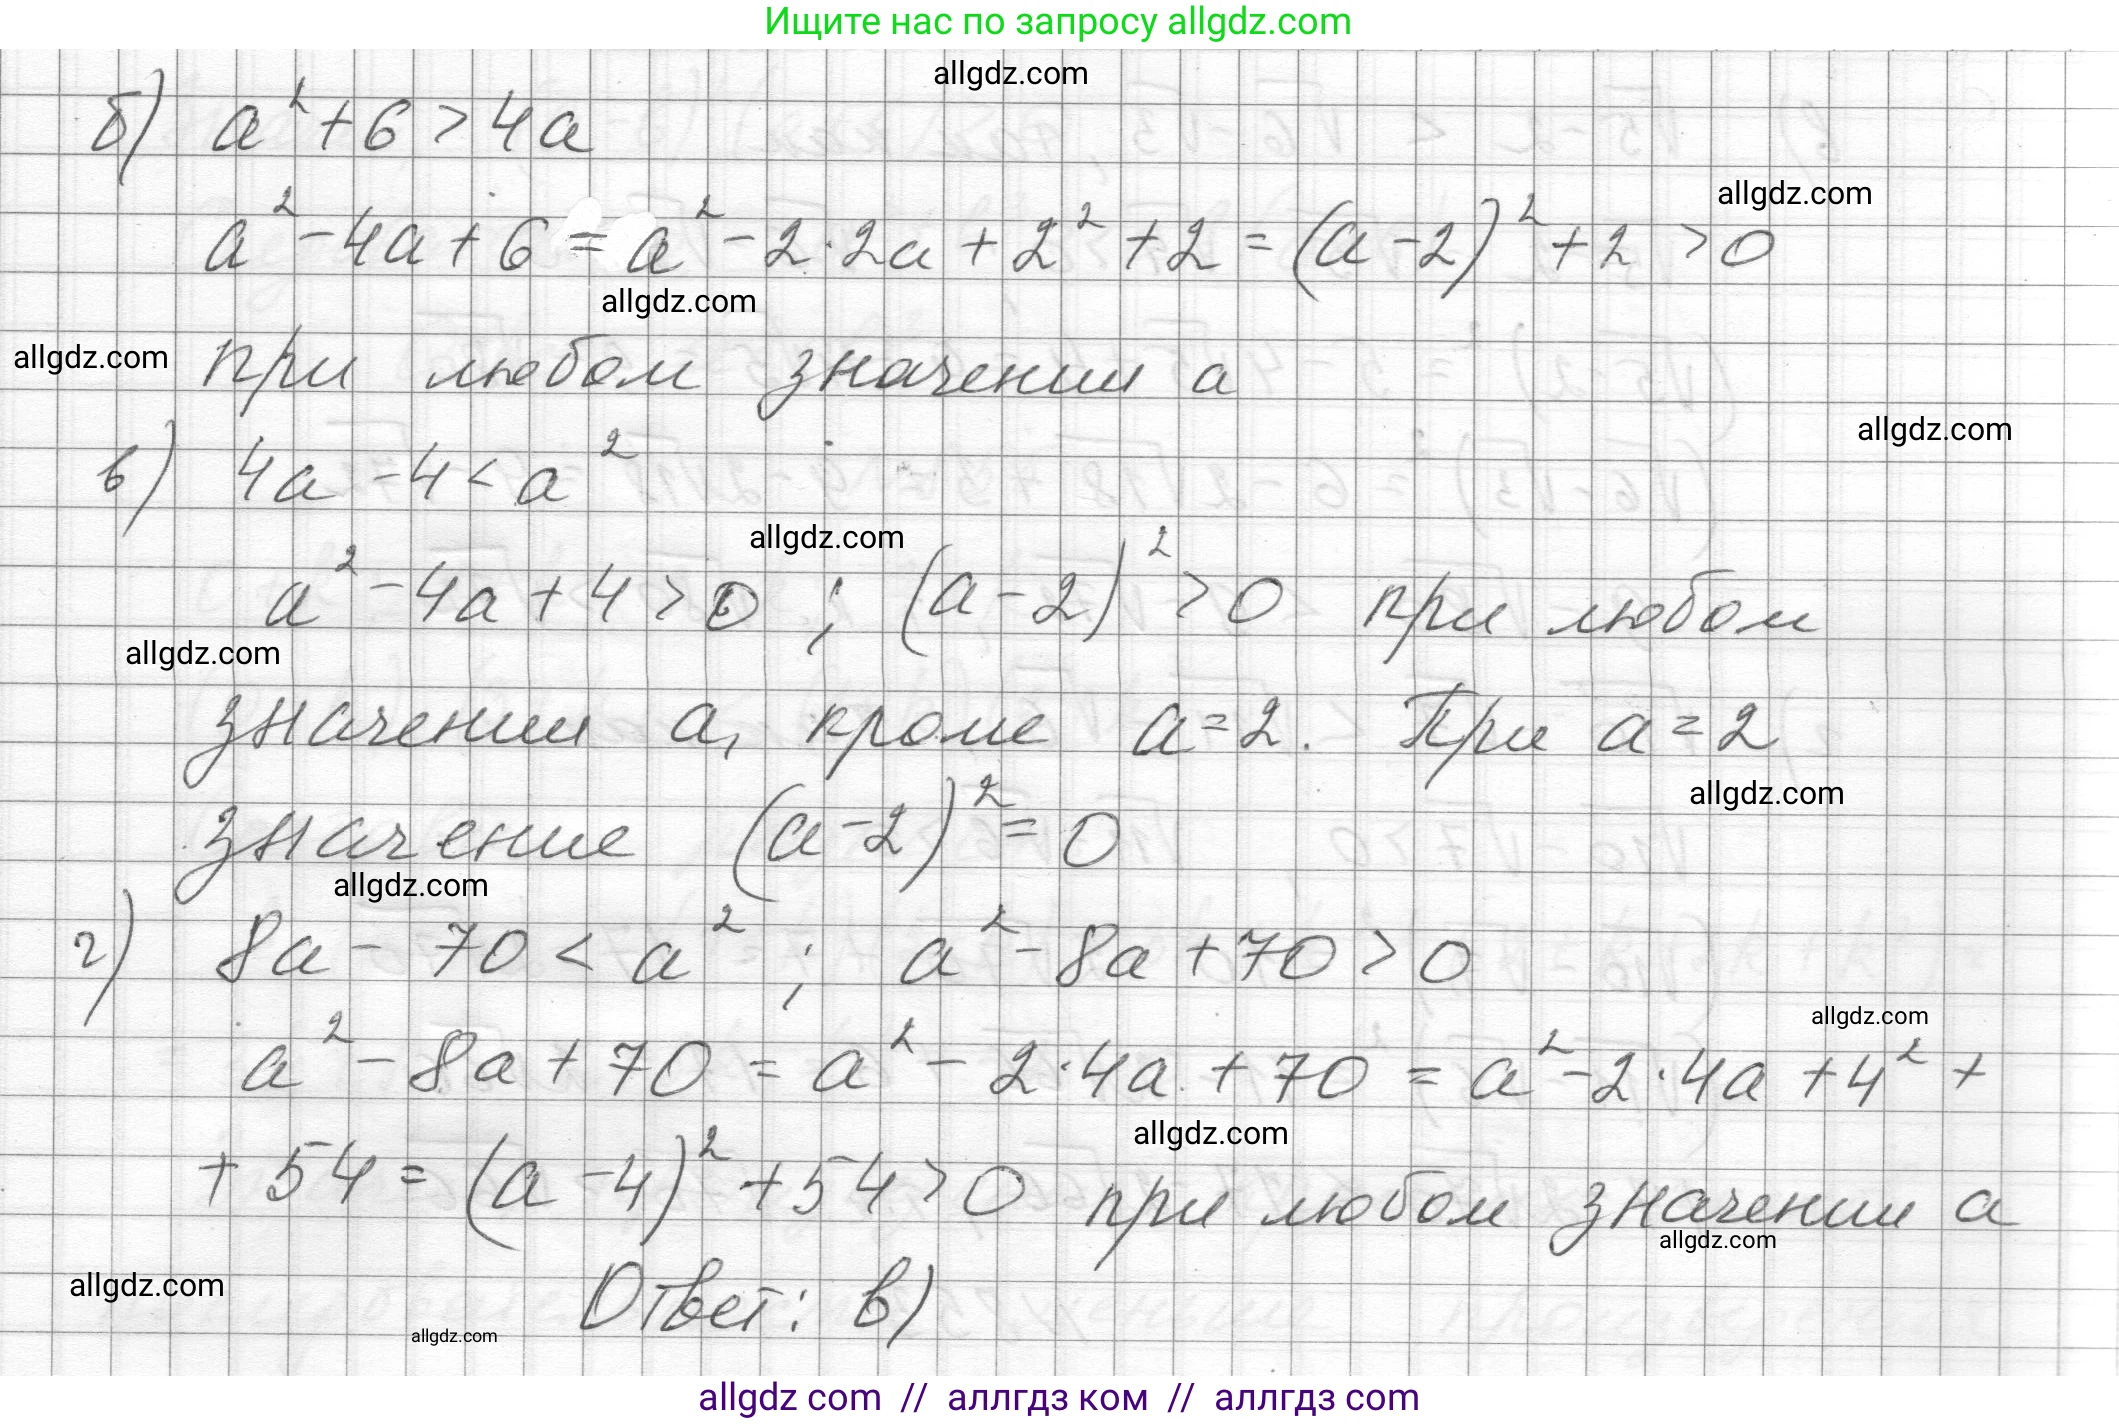 Ищите нас по запросу allgdz.com
allgdz.com
б) a² + 6 > 4a
allgdz.com
a² - 4a + 6 = a² - 2·2a + 2² + 2 = (a - 2)² + 2 > 0
allgdz.com
allgdz.com
при любом значении a
allgdz.com
в) 4a - 4 < a²
allgdz.com
a² - 4a + 4 > 0 ; (a - 2)² > 0 при любом
allgdz.com
значении a, кроме a = 2. При a = 2
allgdz.com
значение (a - 2)² = 0
allgdz.com
г) 8a - 70 < a² ; a² - 8a + 70 > 0
allgdz.com
a² - 8a + 70 = a² - 2·4a + 70 = a² - 2·4a + 4² +
allgdz.com
+ 54 = (a - 4)² + 54 > 0 при любом значении a
allgdz.com
allgdz.com
Ответ: в)
allgdz.com
allgdz com // аллгдз ком // аллгдз com